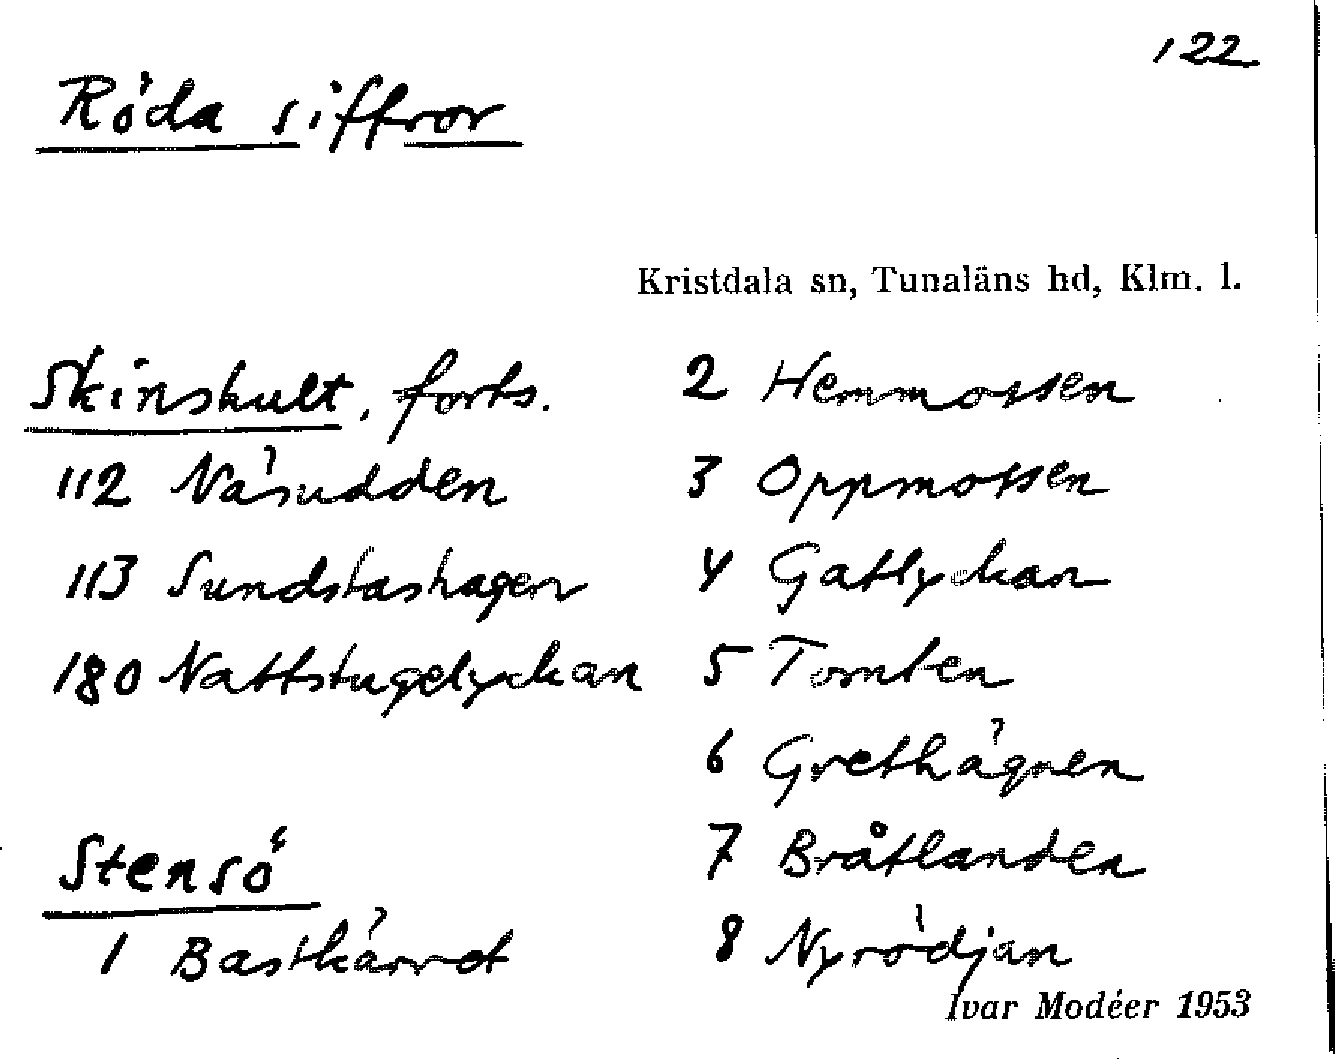 122
Röda siffror
Kristdala sn, Tunaläns hd, Klm. l.
Skinskult, forts.
112 Näsudden
113 Sundstashagen
180 Nattstugelyckan
Stensö
1 Bastkärret
2 Hemmossen
3 Oppmossen
4 Gatlyckan
5 Tomten
6 Grethägnen
7 Bråtlanden
8 Nyrödjan
Ivar Modéer 1953